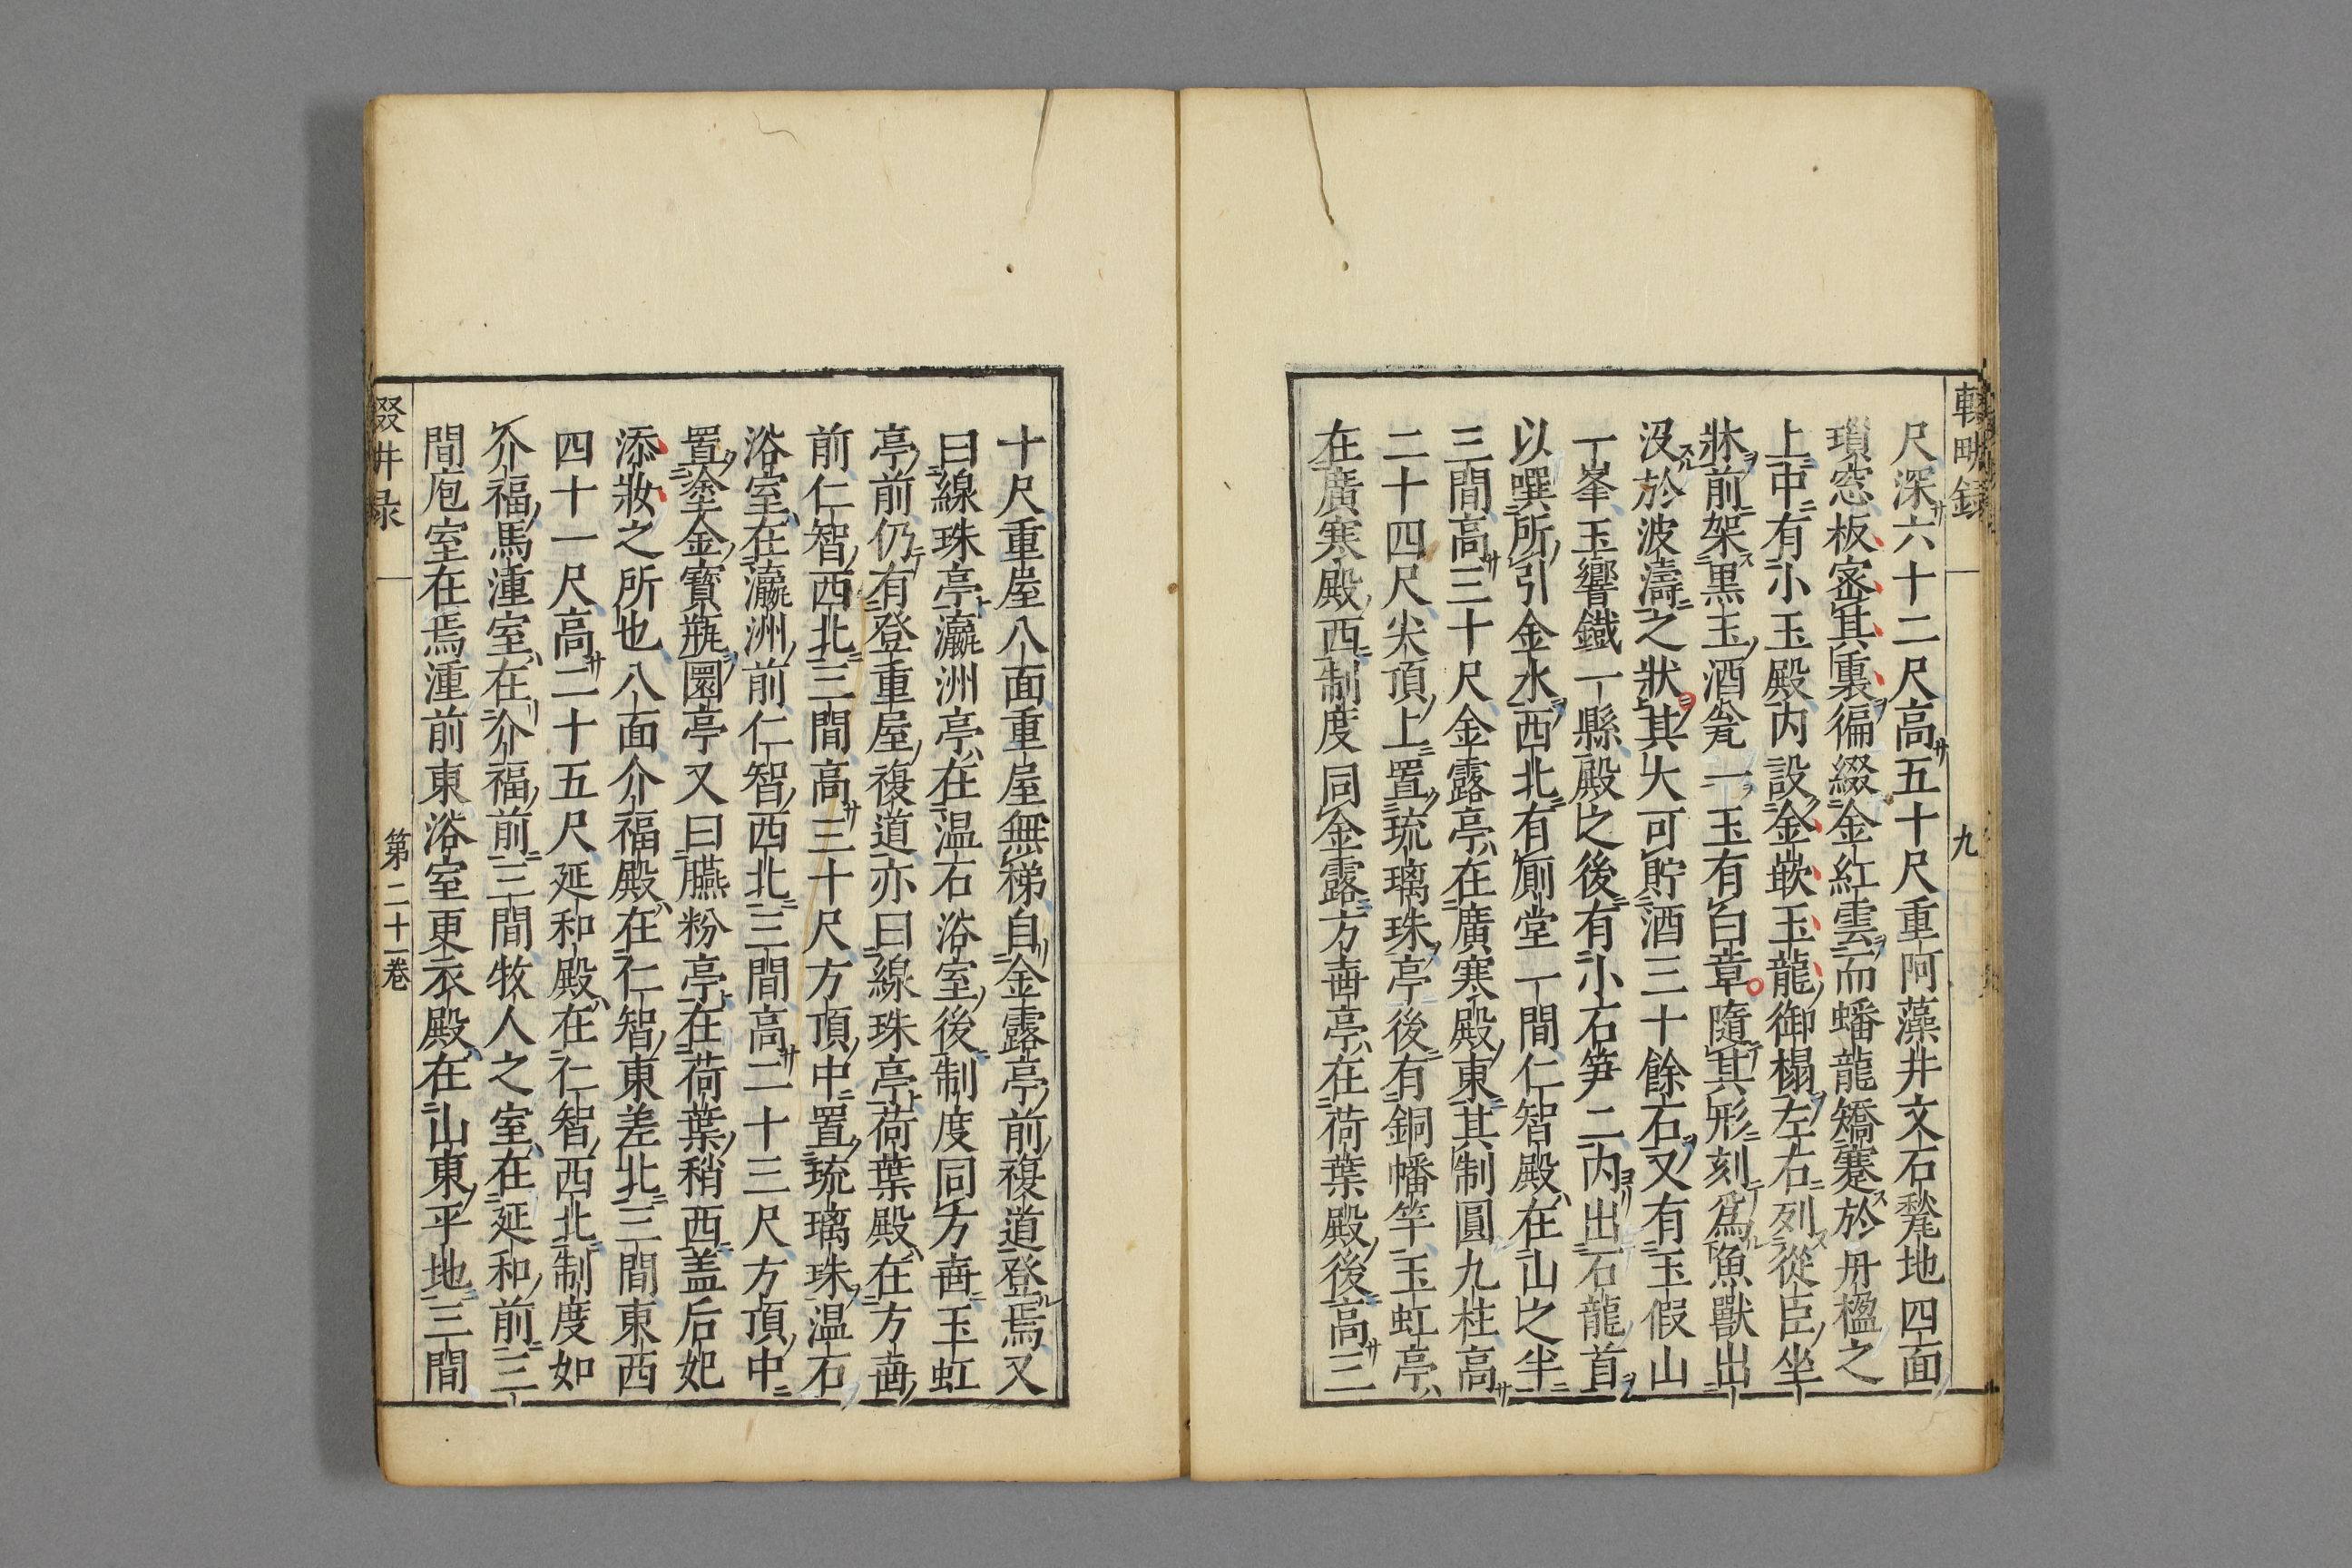 輟畊錄
九
尺深六十二尺高五十尺重阿藻井文石甃地四面
瑣窓板宻其裏徧綴金紅雲而蟠龍矯蹇於丹楹之
上中有小玉殿内設金嵌玉龍御榻左右列從臣坐
牀前架黒玉酒瓮一玉有白章隨其形刻爲魚獸出
没於波濤之狀其大可貯酒三十餘石又有玉假山
一峯玉響鐵一縣殿之後有小石笋二内出石龍首
以噀所引金水西北有厠堂一間仁智殿在山之半
三間高三十尺金露亭在廣寒殿東其制圓九柱高
二十四尺尖頂上置琉璃珠亭後有銅幡竿玉虹亭
在廣寒殿西制度同金露方壺亭在荷葉殿後高三
十尺重屋八面重屋無梯自金露亭前複道登焉又
曰線珠亭瀛洲亭在温石浴室後制度同方壺玉虹
亭前仍有登重屋複道亦曰線珠亭荷葉殿在方壺
前仁智西北三間高三十尺方頂中置琉璃珠温石
浴室在瀛洲前仁智西北三間高二十三尺方頂中
置塗金寳瓶圜亭又曰臙粉亭在荷葉稍西盖后妃
添妝之所也八面介福殿在仁智東差北三間東西
四十一尺高二十五尺延和殿在仁智西北制度如
介福馬湩室在介福前三間牧人之室在延和前三
間庖室在焉湩前東浴室更衣殿在山東平地三間
輟畊录
第二十一卷